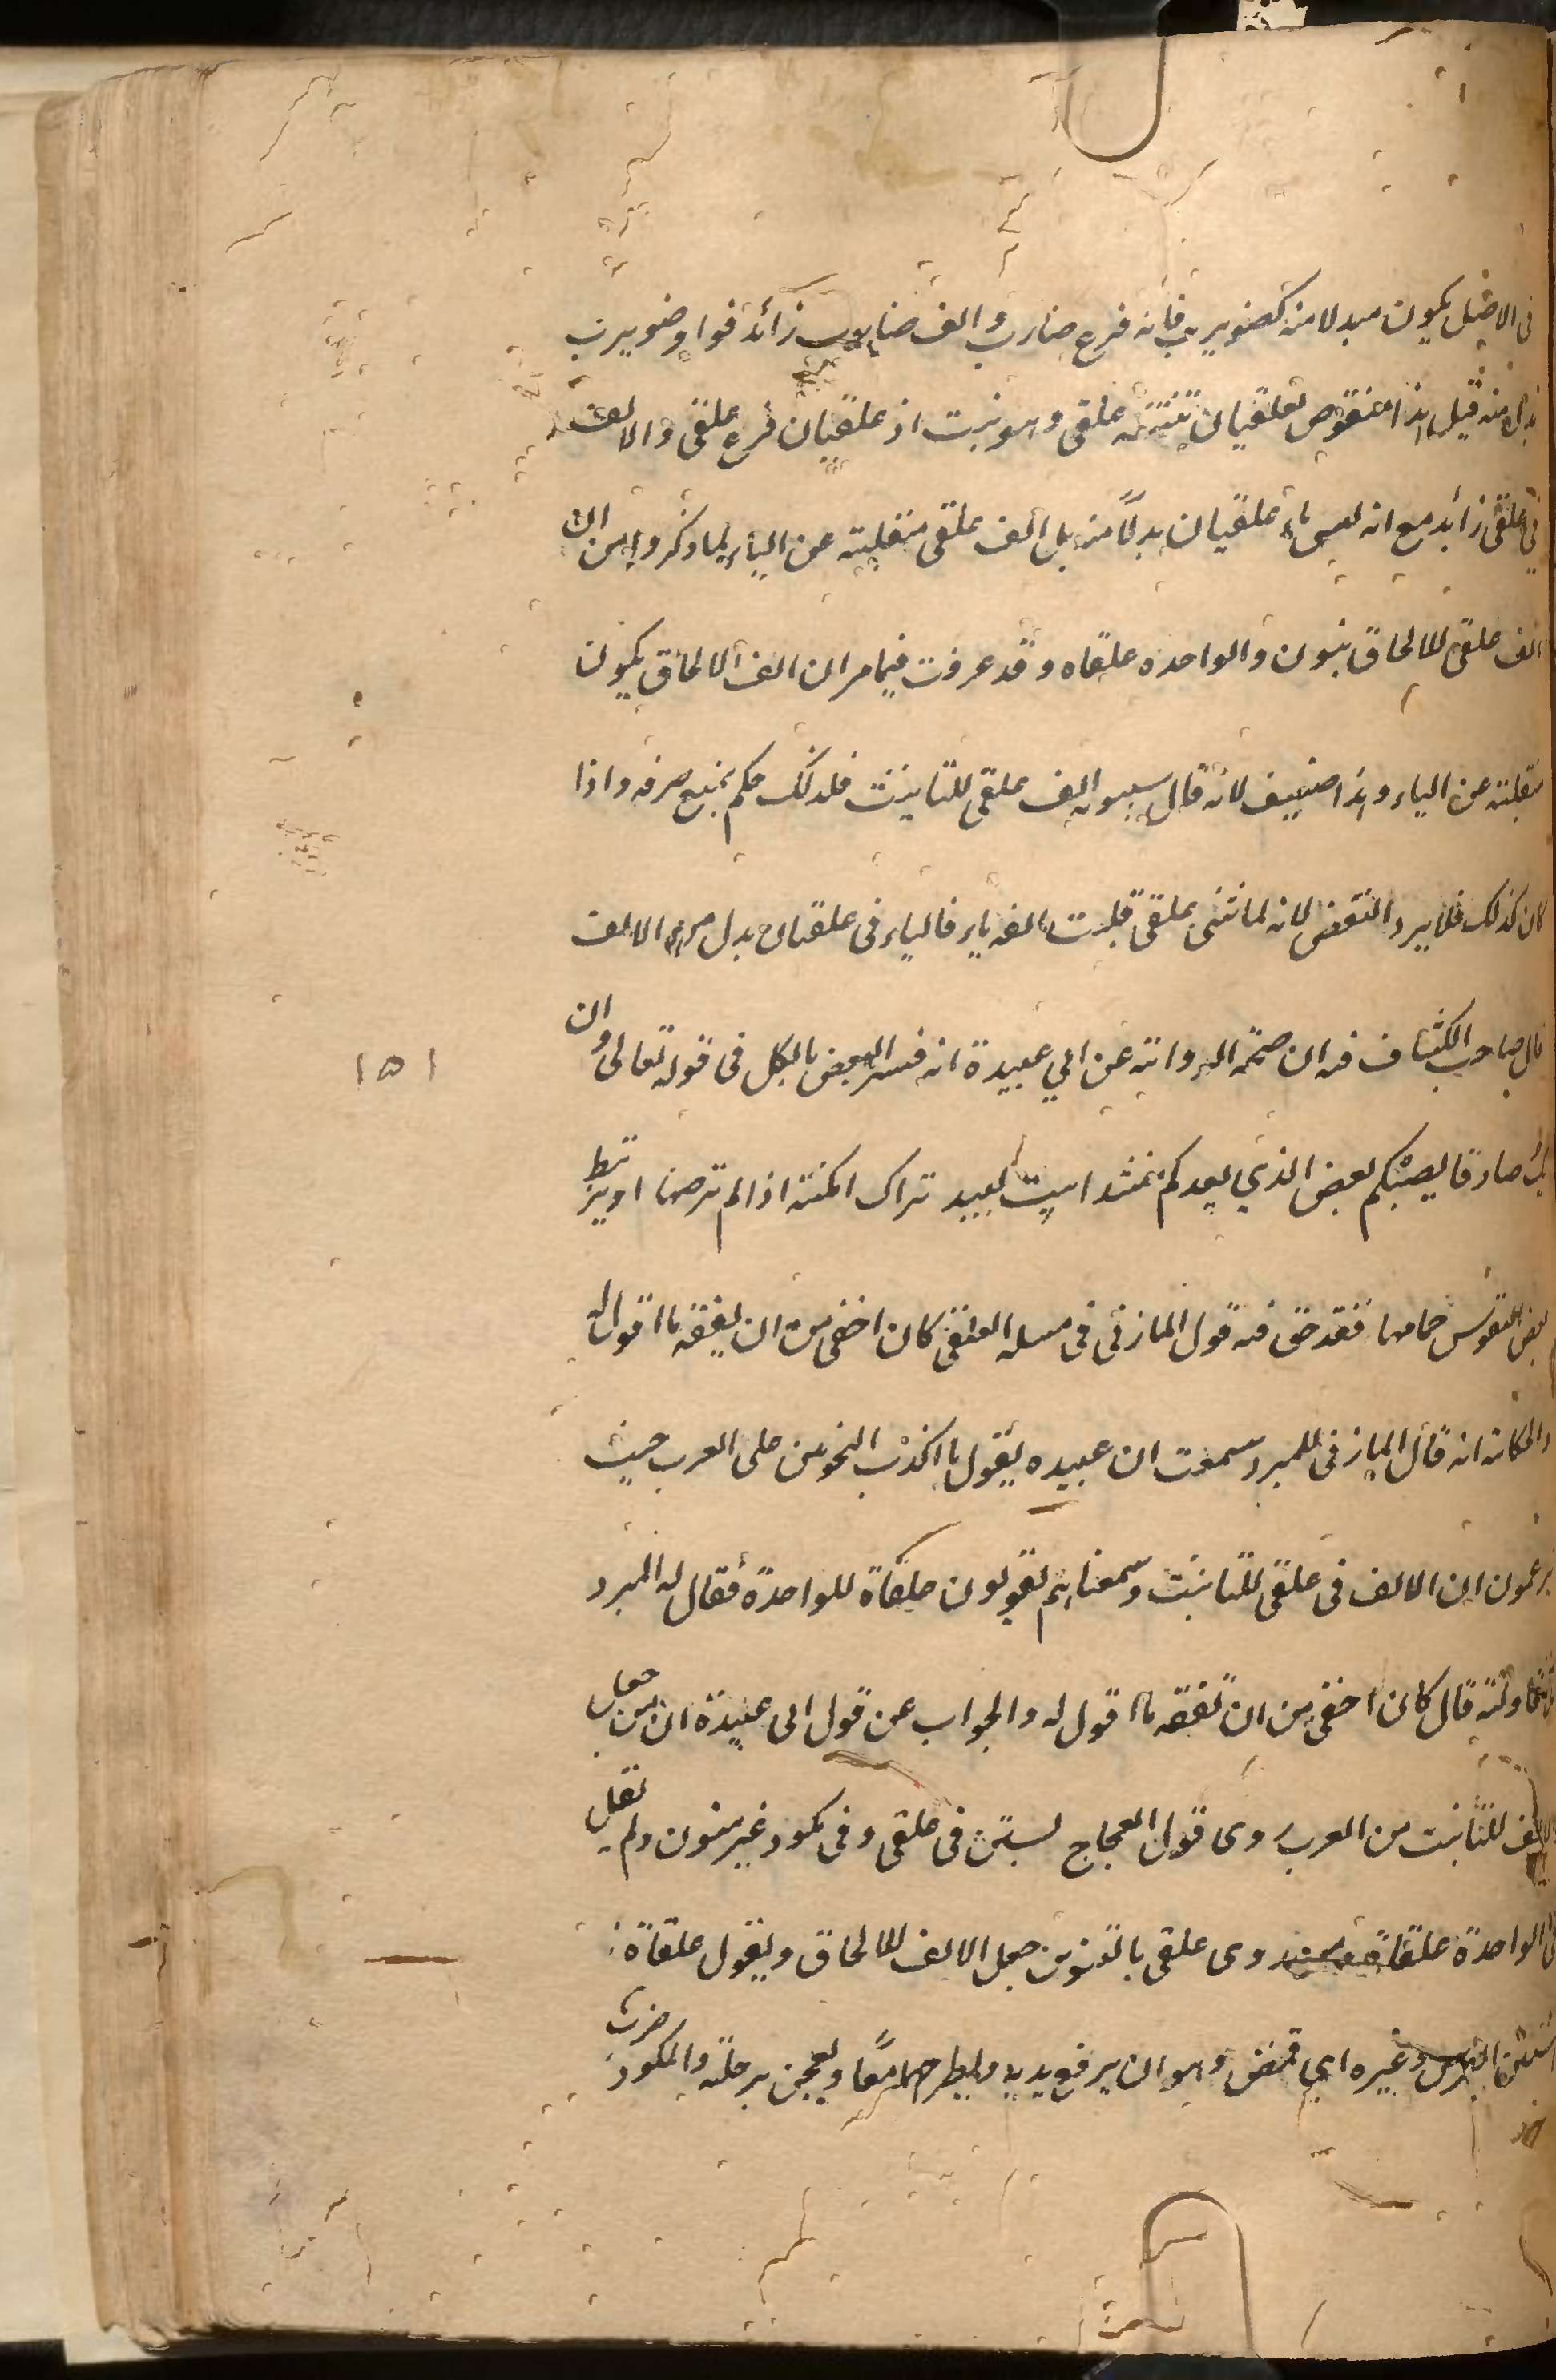 في الاصل يكون مبدلا منه كضويرب فانه فرع ضارب والف ضارب زائد فواو ضويرب
بدل منه قيل هذا منقوض بعلقيان تثنية علقى وهو نبت اذ علقيان فرع علقى والالف
في علقى زائد مع انه ليس ياء علقيان بدلا منه بل الف علقى منقلبة عن الياء لما ذكروا من ان
الف علقى للالحاق بنون والواحده علقاه وقد عرفت فيما مر ان الف الالحاق يكون
منقلبة عن الياء وهذا ضعيف لانه قال سيبويه الف علقى للتانيث فلذلك حكم بمنع صرفه واذا
كان كذلك فلا يرد النقض لانه لما ثنى علقى قلبت الفه ياء فالياء في علقيان بدل من الالف
قال صاحب الكشاف فيه ان صحة الرواية عن ابي عبيدة انه فسر البعض بالكل في قوله تعالى وان
يك صادقا يصبكم بعض الذي يعدكم منشدا بيت لبيد تراك امكنة اذا لم ترضها او يرتبط
بعض النفوس حمامها فقد حق فيه قول المازني في مسله العلقى كان اخفى من ان يفقه ما اقول له
والحكاية انه قال المازني للمبرد سمعت ابا عبيده يقول ما اكذب النحويين على العرب حيث
يزعمون ان الالف في علقى للتانيث وسمعناهم يقولون علقاة للواحدة فقال له المبرد
قال كان اخفى من ان تفقه ما اقول له والجواب عن قول ابي عبيدة ان من جعل
الالف للتانيث من العرب روى قول العجاج يستن في علقى وفي مكور غير منون ولم يقل
في الواحدة علقاة ومن روى علقى بالتنوين جعل الالف للالحاق ويقول علقاة
استن الفرس وغيره اي قمص وهو ان يرفع يديه ويطرحهما معا ويعجن برجليه والمكور ضرب
١٥١